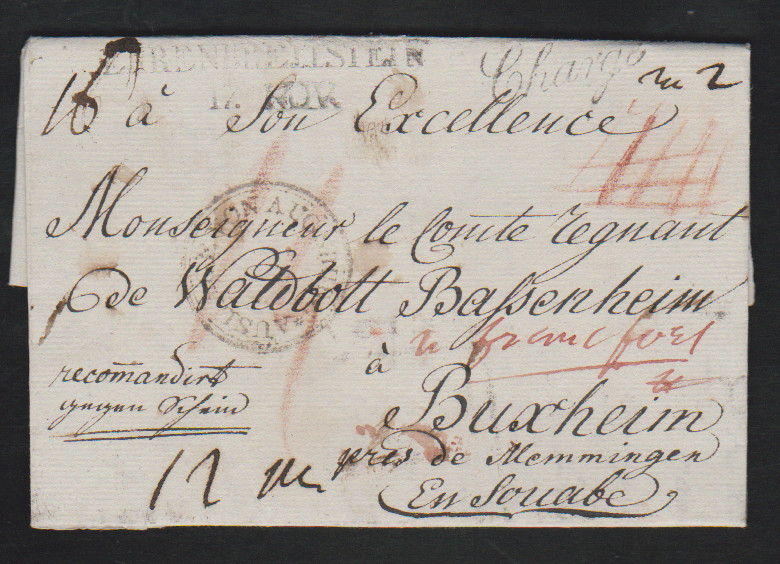 EHRENBREITSTEIN
17. NOV
Chargé
16 à Son Excellence
Monseigneur le Comte regnant
de Waldbott Bassenheim
à
francfort
Buxheim
près de Memmingen
En Souabe
recomandirt
gegen Schein
12